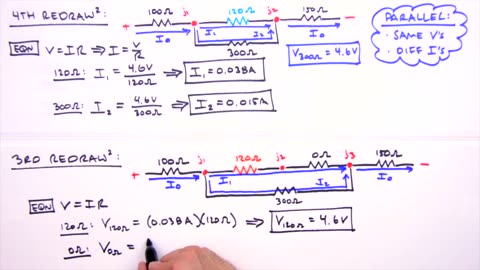 4TH REDRAW²:
+ 100Ω j₁ 120Ω j₂ 150Ω −
I₀ I₁ I₂ I₀
300Ω
V₃₀₀Ω = 4.6V
PARALLEL:
· SAME V's
· DIFF I's
EQN V = IR ⇒ I = V/R
120Ω: I₁ = 4.6V/120Ω ⇒ I₁ = 0.038A
300Ω: I₂ = 4.6V/300Ω ⇒ I₂ = 0.015A
3RD REDRAW²:
+ 100Ω j₁ 120Ω j₂ 0Ω j₃ 150Ω −
I₀ I₁ I₂ I₀
300Ω
EQN V = IR
120Ω: V₁₂₀Ω = (0.038A)(120Ω) ⇒ V₁₂₀Ω = 4.6V
0Ω: V₀Ω =